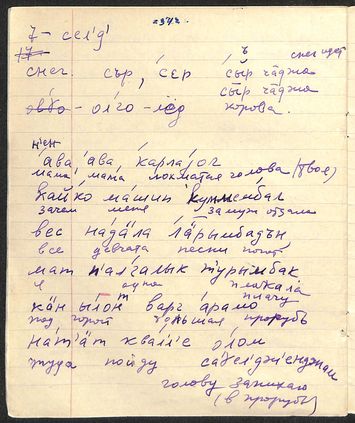 7 - се́л'д'ӣ
снег идет
снег. сър, се́р сы̄р ча̄джа
сы̄р ча̄джа
о́лго - лёд корова.
н'ен
а́ва а́ва карла́й ол
мама мама лохматая голова (твоя)
кайко ма́шип куммемба́л
зачем меня замуж отдала
вес нада́ла ла̄рымбадън
все девчата песни поют
мат палгалык турымбак
я одна плакала
плачу
кӓн ыло́т варг а́рамо
под горой большая прорубь
на́т'а̄т ква́лле о́лом
туда пойду сагелдженджам
голову запихаю
(в прорубь)